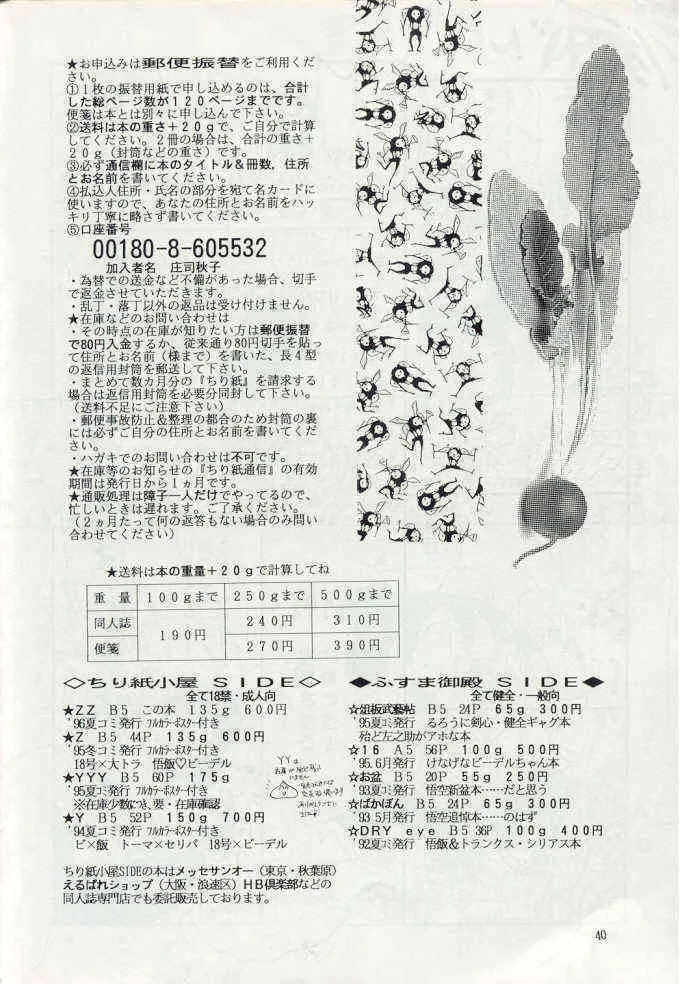 ★お申込みは郵便振替をご利用くだ
さい。
①１枚の振替用紙で申し込めるのは、合計
した総ページ数が１２０ページまでです。
便箋は本とは別々に申し込んで下さい。
②送料は本の重さ＋２０ｇで、ご自分で計算
してください。２冊の場合は、合計の重さ＋
２０ｇ（封筒などの重さ）です。
③必ず通信欄に本のタイトル＆冊数、住所
とお名前を書いてください。
④払込人住所・氏名の部分を宛て名カードに
使いますので、あなたの住所とお名前をハッ
キリ丁寧に略さず書いてください。
⑤口座番号
00180-8-605532
加入者名　庄司秋子
・為替での送金など不備があった場合、切手
で返金させていただきます。
・乱丁・落丁以外の返品は受け付けません。
★在庫などのお問い合わせは
・その時点の在庫が知りたい方は郵便振替
で80円入金するか、従来通り80円切手を貼っ
て住所とお名前（様まで）を書いた、長４型
の返信用封筒を郵送して下さい。
・まとめて数カ月分の『ちり紙』を請求する
場合は返信用封筒を必要分同封して下さい。
（送料不足にご注意下さい）
・郵便事故防止＆整理の都合のため封筒の裏
には必ずご自分の住所とお名前を書いてくだ
さい。
・ハガキでのお問い合わせは不可です。
★在庫等のお知らせの『ちり紙通信』の有効
期間は発行日から１ヵ月です。
★通販処理は障子一人だけでやってるので、
忙しいときは遅れます。ご了承ください。
（２ヵ月たって何の返答もない場合のみ問い
合わせてください）
★送料は本の重量＋２０ｇで計算してね
重　量　１００ｇまで　２５０ｇまで　５００ｇまで
同人誌　１９０円　２４０円　３１０円
便箋　２７０円　３９０円
◇ちり紙小屋　ＳＩＤＥ◇
全て18禁・成人向
★ＺＺ　Ｂ５　この本　１３５ｇ　６００円
'96夏コミ発行　フルカラーポスター付き
★Ｚ　Ｂ５　44Ｐ　１３５ｇ　６００円
'95冬コミ発行　フルカラーポスター付き
18号×大トラ　悟飯♡ビーデル
★ＹＹＹ　Ｂ５　60Ｐ　１７５ｇ
'95夏コミ発行　フルカラーポスター付き
※在庫少数につき、要・在庫確認
★Ｙ　Ｂ５　52Ｐ　１５０ｇ　７００円
'94夏コミ発行　フルカラーポスター付き
ビ×飯　トーマ×セリパ　18号×ビーデル
ちり紙小屋SIDEの本はメッセサンオー（東京・秋葉原）
えるぱれショップ（大阪・浪速区）ＨＢ倶楽部などの
同人誌専門店でも委託販売しております。
◆ふすま御殿　ＳＩＤＥ◆
全て健全・一般向
☆俎板武藝帖　Ｂ５　24Ｐ　６５ｇ　３００円
'95夏コミ発行　るろうに剣心・健全ギャグ本
殆ど左之助がアホな本
☆１６　Ａ５　56Ｐ　１００ｇ　５００円
'95.６月発行　けなげなビーデルちゃん本
☆お盆　Ｂ５　20Ｐ　５５ｇ　２５０円
'93夏コミ発行　悟空新盆本……だと思う
☆ばかぼん　Ｂ５　24Ｐ　６５ｇ　３００円
'93 ５月発行　悟空追悼本……のはず
☆ＤＲＹ　ｅｙｅ　Ｂ５　36Ｐ　１００ｇ　４００円
'92夏コミ発行　悟飯＆トランクス・シリアス本
40